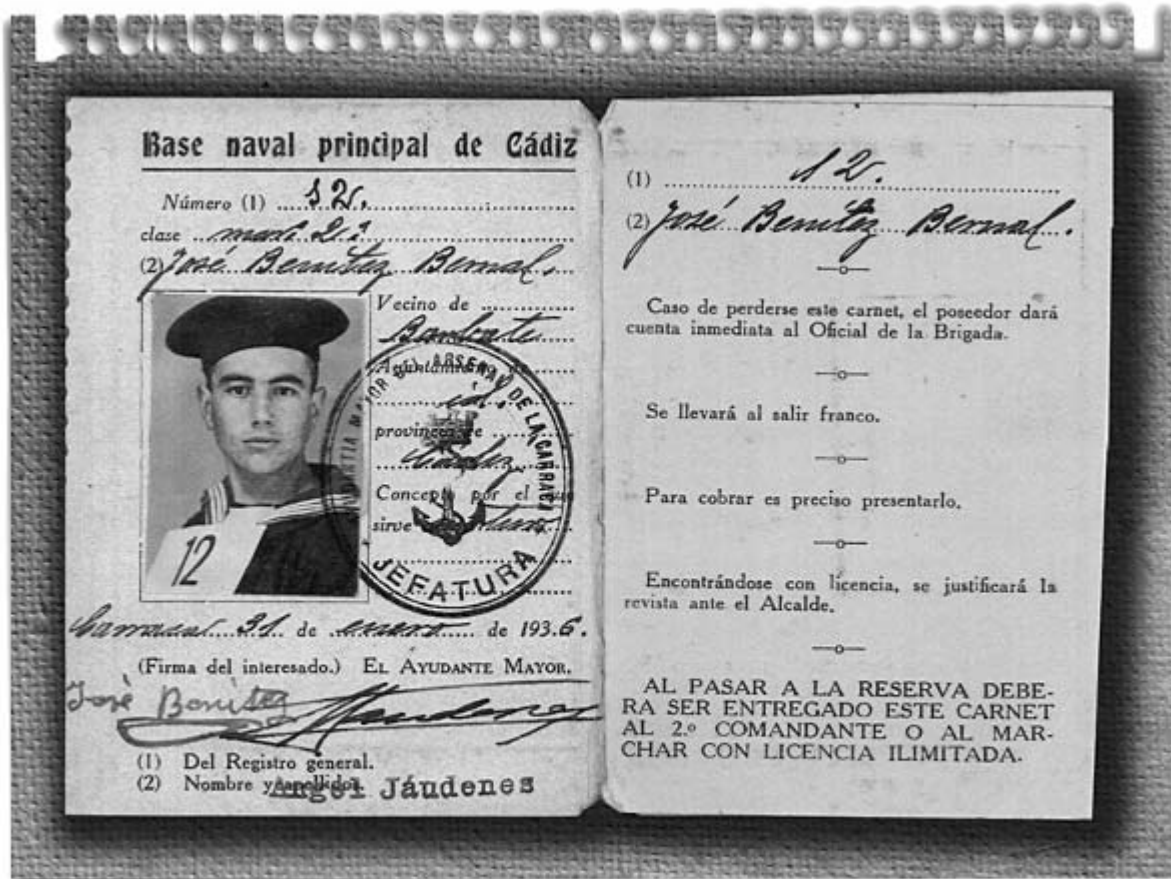 Base naval principal de Cádiz
Número (1) 12.
clase mari 2ª
(2) José Benítez Bernal.
Vecino de
Barbate
Ayuntamiento de
id.
provincia de
Cádiz
Concepto por el que
sirve
12
MAYOR DEL ARSENAL DE LA CARRACA
JEFATURA
Carraca 31 de enero de 1936.
(Firma del interesado.) EL AYUDANTE MAYOR.
José Benítez
(1) Del Registro general.
(2) Nombre y apellidos.
Angel Jáudenes
(1) 12.
(2) José Benítez Bernal.
Caso de perderse este carnet, el poseedor dará
cuenta inmediata al Oficial de la Brigada.
Se llevará al salir franco.
Para cobrar es preciso presentarlo.
Encontrándose con licencia, se justificará la
revista ante el Alcalde.
AL PASAR A LA RESERVA DEBE-
RA SER ENTREGADO ESTE CARNET
AL 2.º COMANDANTE O AL MAR-
CHAR CON LICENCIA ILIMITADA.